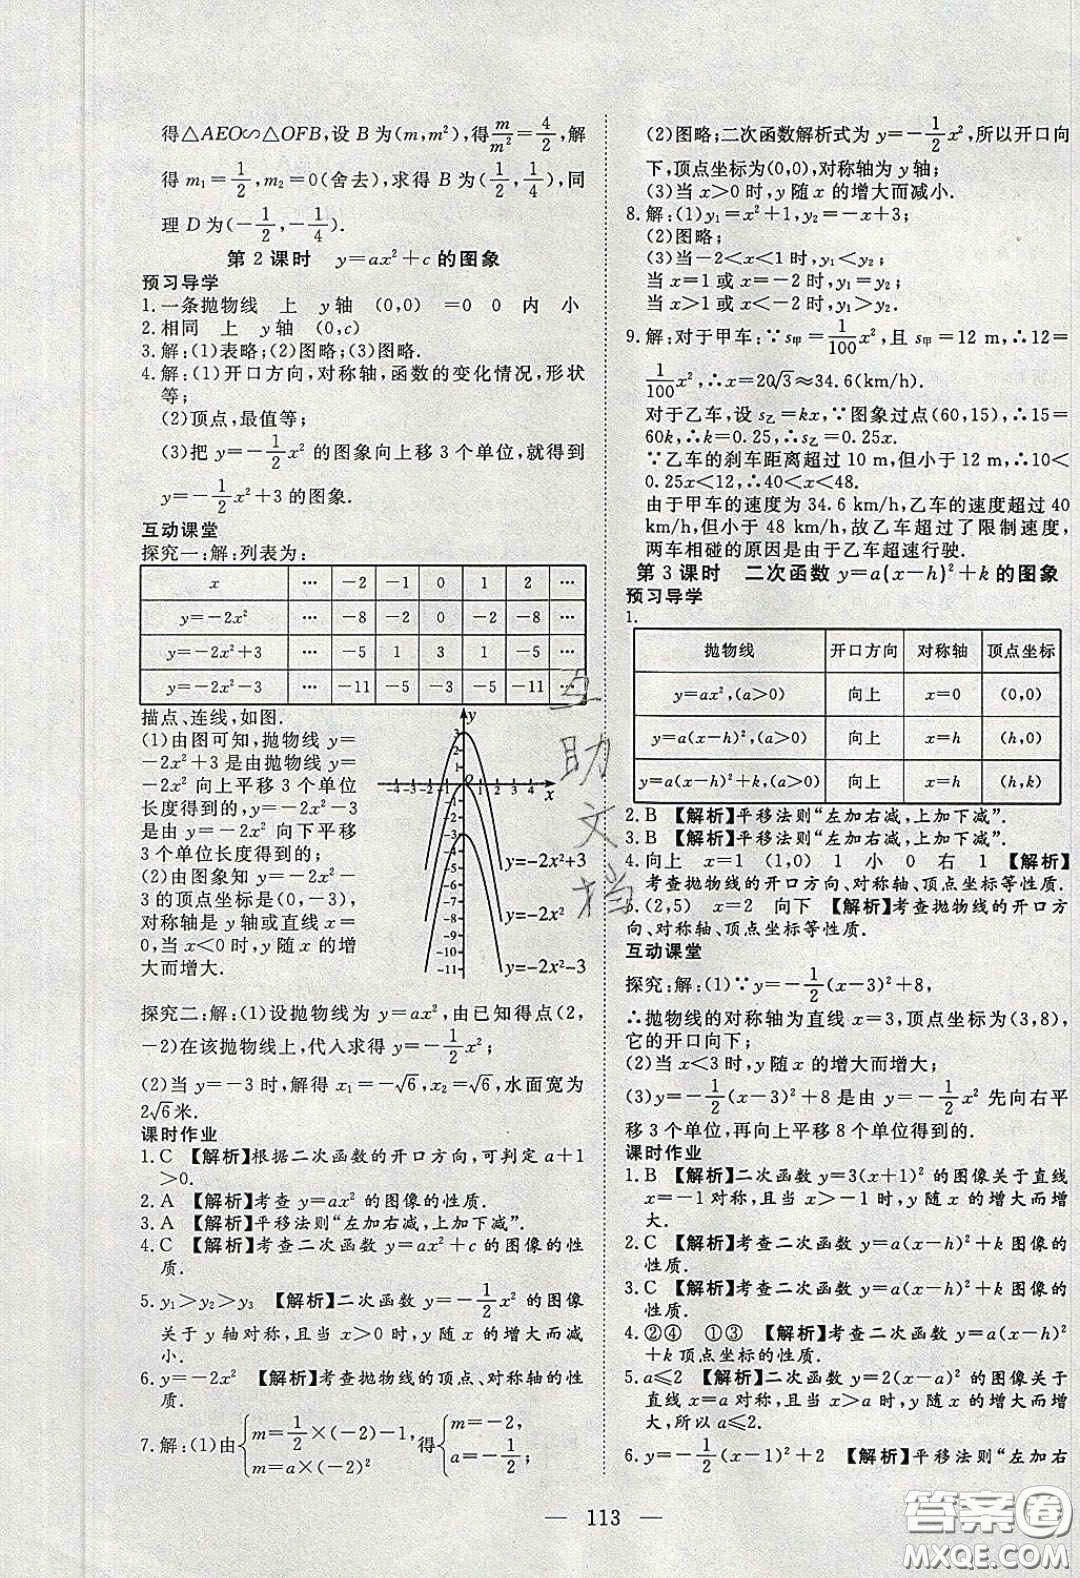 得△AEO∽△OFB,设 B 为(m,m²),得m/m²=4/2,解
得 m₁=1/2,m₂=0(舍去),求得 B 为(1/2,1/4),同
理 D 为(-1/2,-1/4).
第 2 课时 y=ax²+c 的图象
预习导学
1.一条抛物线 上 y 轴 (0,0) =0 0 内 小
2.相同 上 y 轴 (0,c)
3.解:(1)表略;(2)图略;(3)图略.
4.解:(1)开口方向,对称轴,函数的变化情况,形状
等;
(2)顶点,最值等;
(3)把 y=-1/2x² 的图象向上移 3 个单位,就得到
y=-1/2x²+3 的图象.
互动课堂
探究一:解:列表为:
x … -2 -1 0 1 2 …
y=-2x² … -8 -2 0 -2 -8 …
y=-2x²+3 … -5 1 3 1 -5 …
y=-2x²-3 … -11 -5 -3 -5 -11 …
描点、连线,如图.
(1)由图可知,抛物线 y=
-2x²+3 是由抛物线 y=
-2x² 向上平移 3 个单位
长度得到的,y=-2x²-3
是由 y=-2x² 向下平移
3 个单位长度得到的.
(2)由图象知 y=-2x²-
3 的顶点坐标是(0,-3),
对称轴是 y 轴或直线 x=
0,当 x<0 时,y 随 x 的增
大而增大.
y
3
2
1
-4-3-2-1 O 1 2 3 4 x
-1
-2
-3
-4
-5
-6
-7
-8
-9
-10
-11
y=-2x²+3
y=-2x²
y=-2x²-3
探究二:解:(1)设抛物线为 y=ax²,由已知得点(2,
-2)在该抛物线上,代入求得 y=-1/2x²;
(2)当 y=-3 时,解得 x₁=-√6,x₂=√6,水面宽为
2√6米.
课时作业
1.C 【解析】根据二次函数的开口方向,可判定 a+1
>0.
2.A 【解析】考查 y=ax² 的图像的性质.
3.A 【解析】平移法则“左加右减,上加下减”.
4.C 【解析】考查二次函数 y=ax²+c 的图像的性
质.
5.y₁>y₂>y₃ 【解析】二次函数 y=-1/2x² 的图像
关于 y 轴对称,且当 x>0 时,y 随 x 的增大而减
小.
6.y=-2x² 【解析】考查抛物线的顶点、对称轴的性
质.
7.解:(1)由{m=1/2×(-2)×(-2) m=a×(-2)² 得{m=-2, a=-1/2,
(2)图略;二次函数解析式为 y=-1/2x²,所以开口向
下,顶点坐标为(0,0),对称轴为 y 轴;
(3)当 x>0 时,y 随 x 的增大而减小.
8.解:(1)y₁=x²+1,y₂=-x+3;
(2)图略;
(3)当-2<x<1 时,y₂>y₁;
当 x=1 或 x=-2 时,y₁=y₂;
当 x>1 或 x<-2 时,y₁>y₂.
9.解:对于甲车:∵s甲=1/100x²,且 s甲=12 m,∴12=
1/100x²,∴x=20√3≈34.6(km/h).
对于乙车,设 s乙=kx,∵图象过点(60,15),∴15=
60k,∴k=0.25,∴s乙=0.25x.
∵乙车的刹车距离超过 10 m,但小于 12 m,∴10<
0.25x<12,∴40<x<48.
由于甲车的速度为 34.6 km/h,乙车的速度超过 40
km/h,但小于 48 km/h,故乙车超过了限制速度,
两车相碰的原因是由于乙车超速行驶.
第 3 课时 二次函数 y=a(x-h)²+k 的图象
预习导学
1.
抛物线 开口方向 对称轴 顶点坐标
y=ax²,(a>0) 向上 x=0 (0,0)
y=a(x-h)²,(a>0) 向上 x=h (h,0)
y=a(x-h)²+k,(a>0) 向上 x=h (h,k)
2.B 【解析】平移法则“左加右减,上加下减”.
3.B 【解析】平移法则“左加右减,上加下减”.
4.向上 x=1 (1,0) 1 小 0 右 1 【解析】
考查抛物线的开口方向、对称轴、顶点坐标等性质.
5.(2,5) x=2 向下 【解析】考查抛物线的开口方
向、对称轴、顶点坐标等性质.
互动课堂
探究:解:(1)∵y=-1/2(x-3)²+8,
∴抛物线的对称轴为直线 x=3,顶点坐标为(3,8),
它的开口向下;
(2)当 x<3 时,y 随 x 的增大而增大;
(3)y=-1/2(x-3)²+8 是由 y=-1/2x² 先向右平
移 3 个单位,再向上平移 8 个单位得到的.
课时作业
1.B 【解析】二次函数 y=3(x+1)² 的图像关于直线
x=-1 对称,且当 x>-1 时,y 随 x 的增大而增
大.
2.C 【解析】考查二次函数 y=a(x-h)²+k 图像的
性质.
3.C 【解析】考查二次函数 y=a(x-h)²+k 图像的
性质.
4.②④ ①③ 【解析】考查二次函数 y=a(x-h)²
+k 顶点坐标的性质.
5.a≤2 【解析】二次函数 y=2(x-a)² 的图像关于
直线 x=a 对称,且当 x>a 时,y 随 x 的增大而增
大,所以 a≤2.
6.y=-1/2(x-1)²+2 【解析】平移法则“左加右
— 113 —
互助文档
答案圈
MXQE.COM